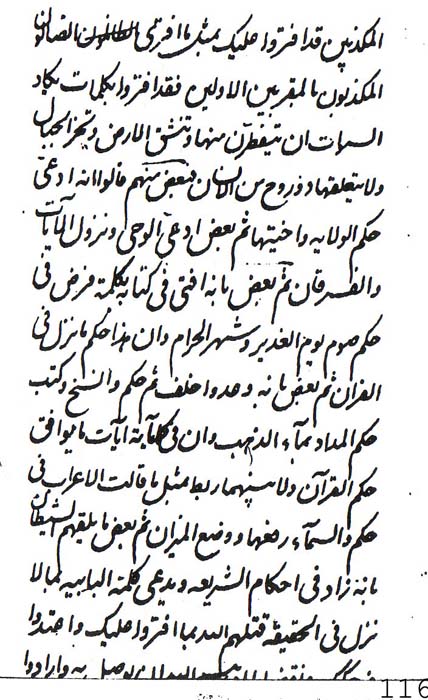 المكذبين قد افتروا عليك بمثل ما افترى الظالمون الضالون
المكذبون بالمقربين الاولين فقد افتروا بكلمات يكاد
السموات ان يتفطرن منها وتنشق الارض وتخر الجبال
ولا يتعلق بها ذو روح من الانسان فبعض منهم قالوا انه ادعى
حكم الولايه واختيها ثم بعض ادعى الوحى ونزول الآيات
والفرقان ثم بعض بانه افتى فى كتابه بكلمة فرض فى
حكم صوم يوم الغدير وشهر الحرام وان هذا حكم ما نزل فى
القران ثم بعض بانه وعدوا خلف ثم حكم والنسخ وكتب
حكم المداد بمآء الذهب وان فى كتابه آيات ما يوافق
حكم القرآن ولا بينهما ربط بمثل ما قالت الاعراب فى
حكم والسمآء رفعها ووضع الميزان ثم بعض ما يلقيهم الشيطان
بانه زاد فى احكام الشريعه ويدعى كلمة البابيه بما لا
نزل فى الحقيقه قتلهم الله بما افتروا عليك واعتدوا
به وارادوا
116